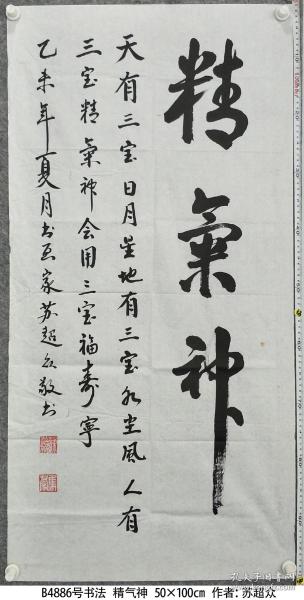 精氣神
天有三宝日月星地有三宝水火風人有
三宝精氣神会用三宝福寿寧
乙未年夏月书画家苏超众敬书
B4886号书法 精气神 50×100cm 作者: 苏超众